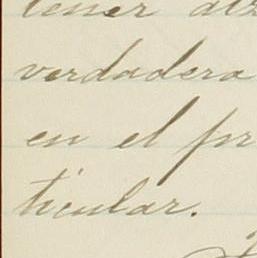 tener
verdadera
en el pr
ticular.